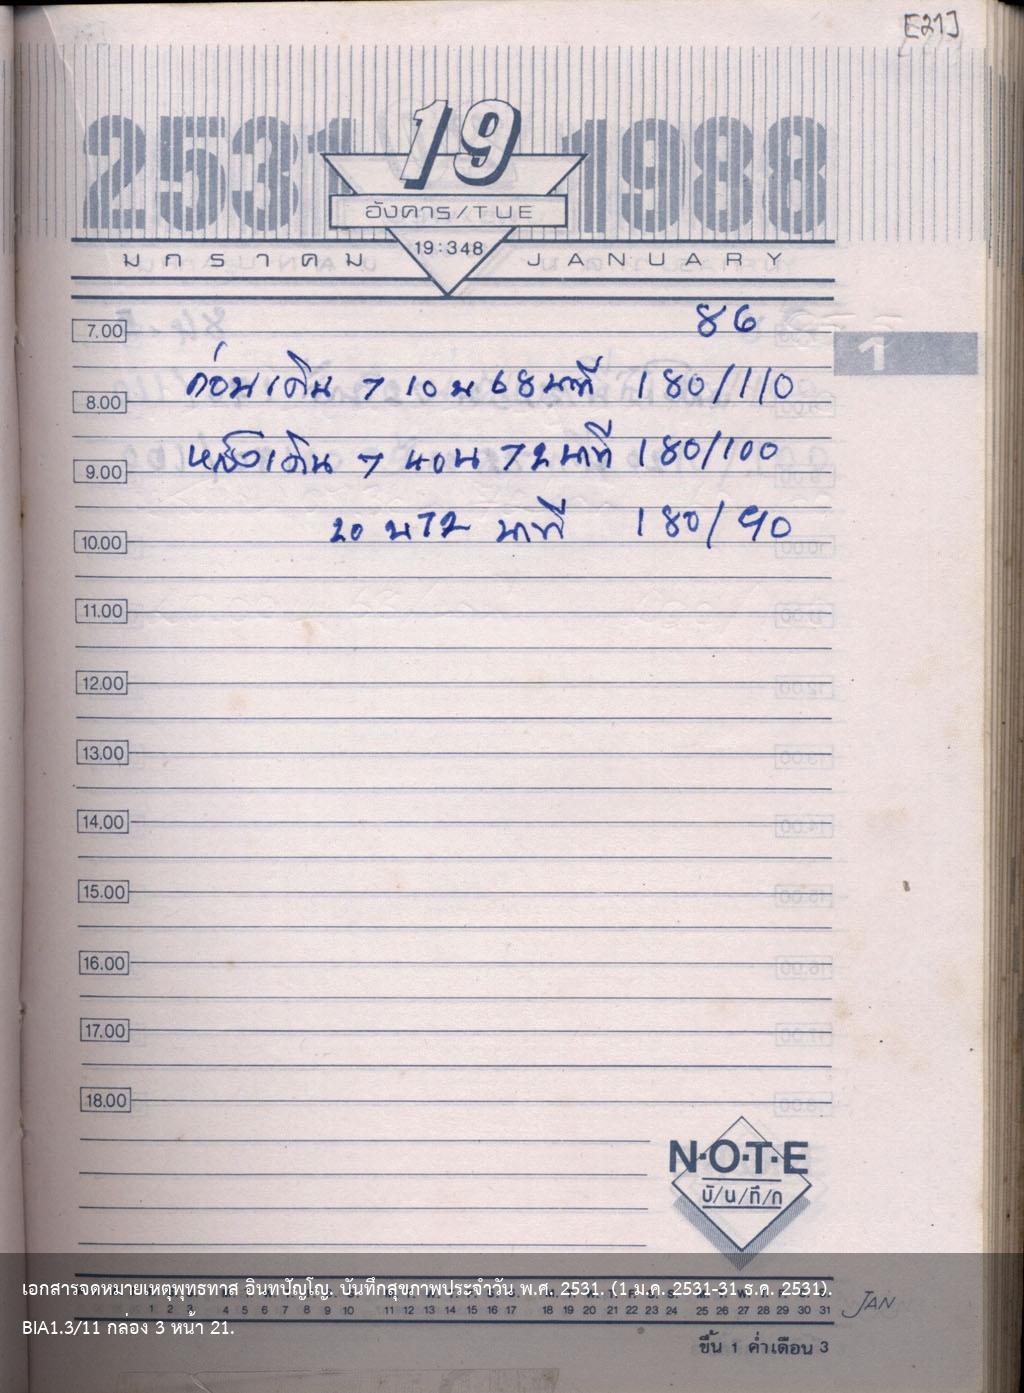 [21]
2531 19 1988
อังคาร/TUE
19:348
มกราคม JANUARY
86
7.00
1
ก่อนเดิน 7 10 น 68 นาที 180/110
8.00
หลังเดิน 7 40 น 72 นาที 180/100
9.00
20 น 72 นาที 180/90
10.00
11.00
12.00
13.00
14.00
15.00
16.00
17.00
18.00
N·O·T·E
บั/น/ทึ/ก
เอกสารจดหมายเหตุพุทธทาส อินทปัญโญ. บันทึกสุขภาพประจำวัน พ.ศ. 2531. (1 ม.ค. 2531-31 ธ.ค. 2531).
1 2 3 4 5 6 7 8 9 10 11 12 13 14 15 16 17 18 19 20 21 22 23 24 25 26 27 28 29 30 31 JAN
BIA1.3/11 กล่อง 3 หน้า 21.
ขึ้น 1 ค่ำเดือน 3